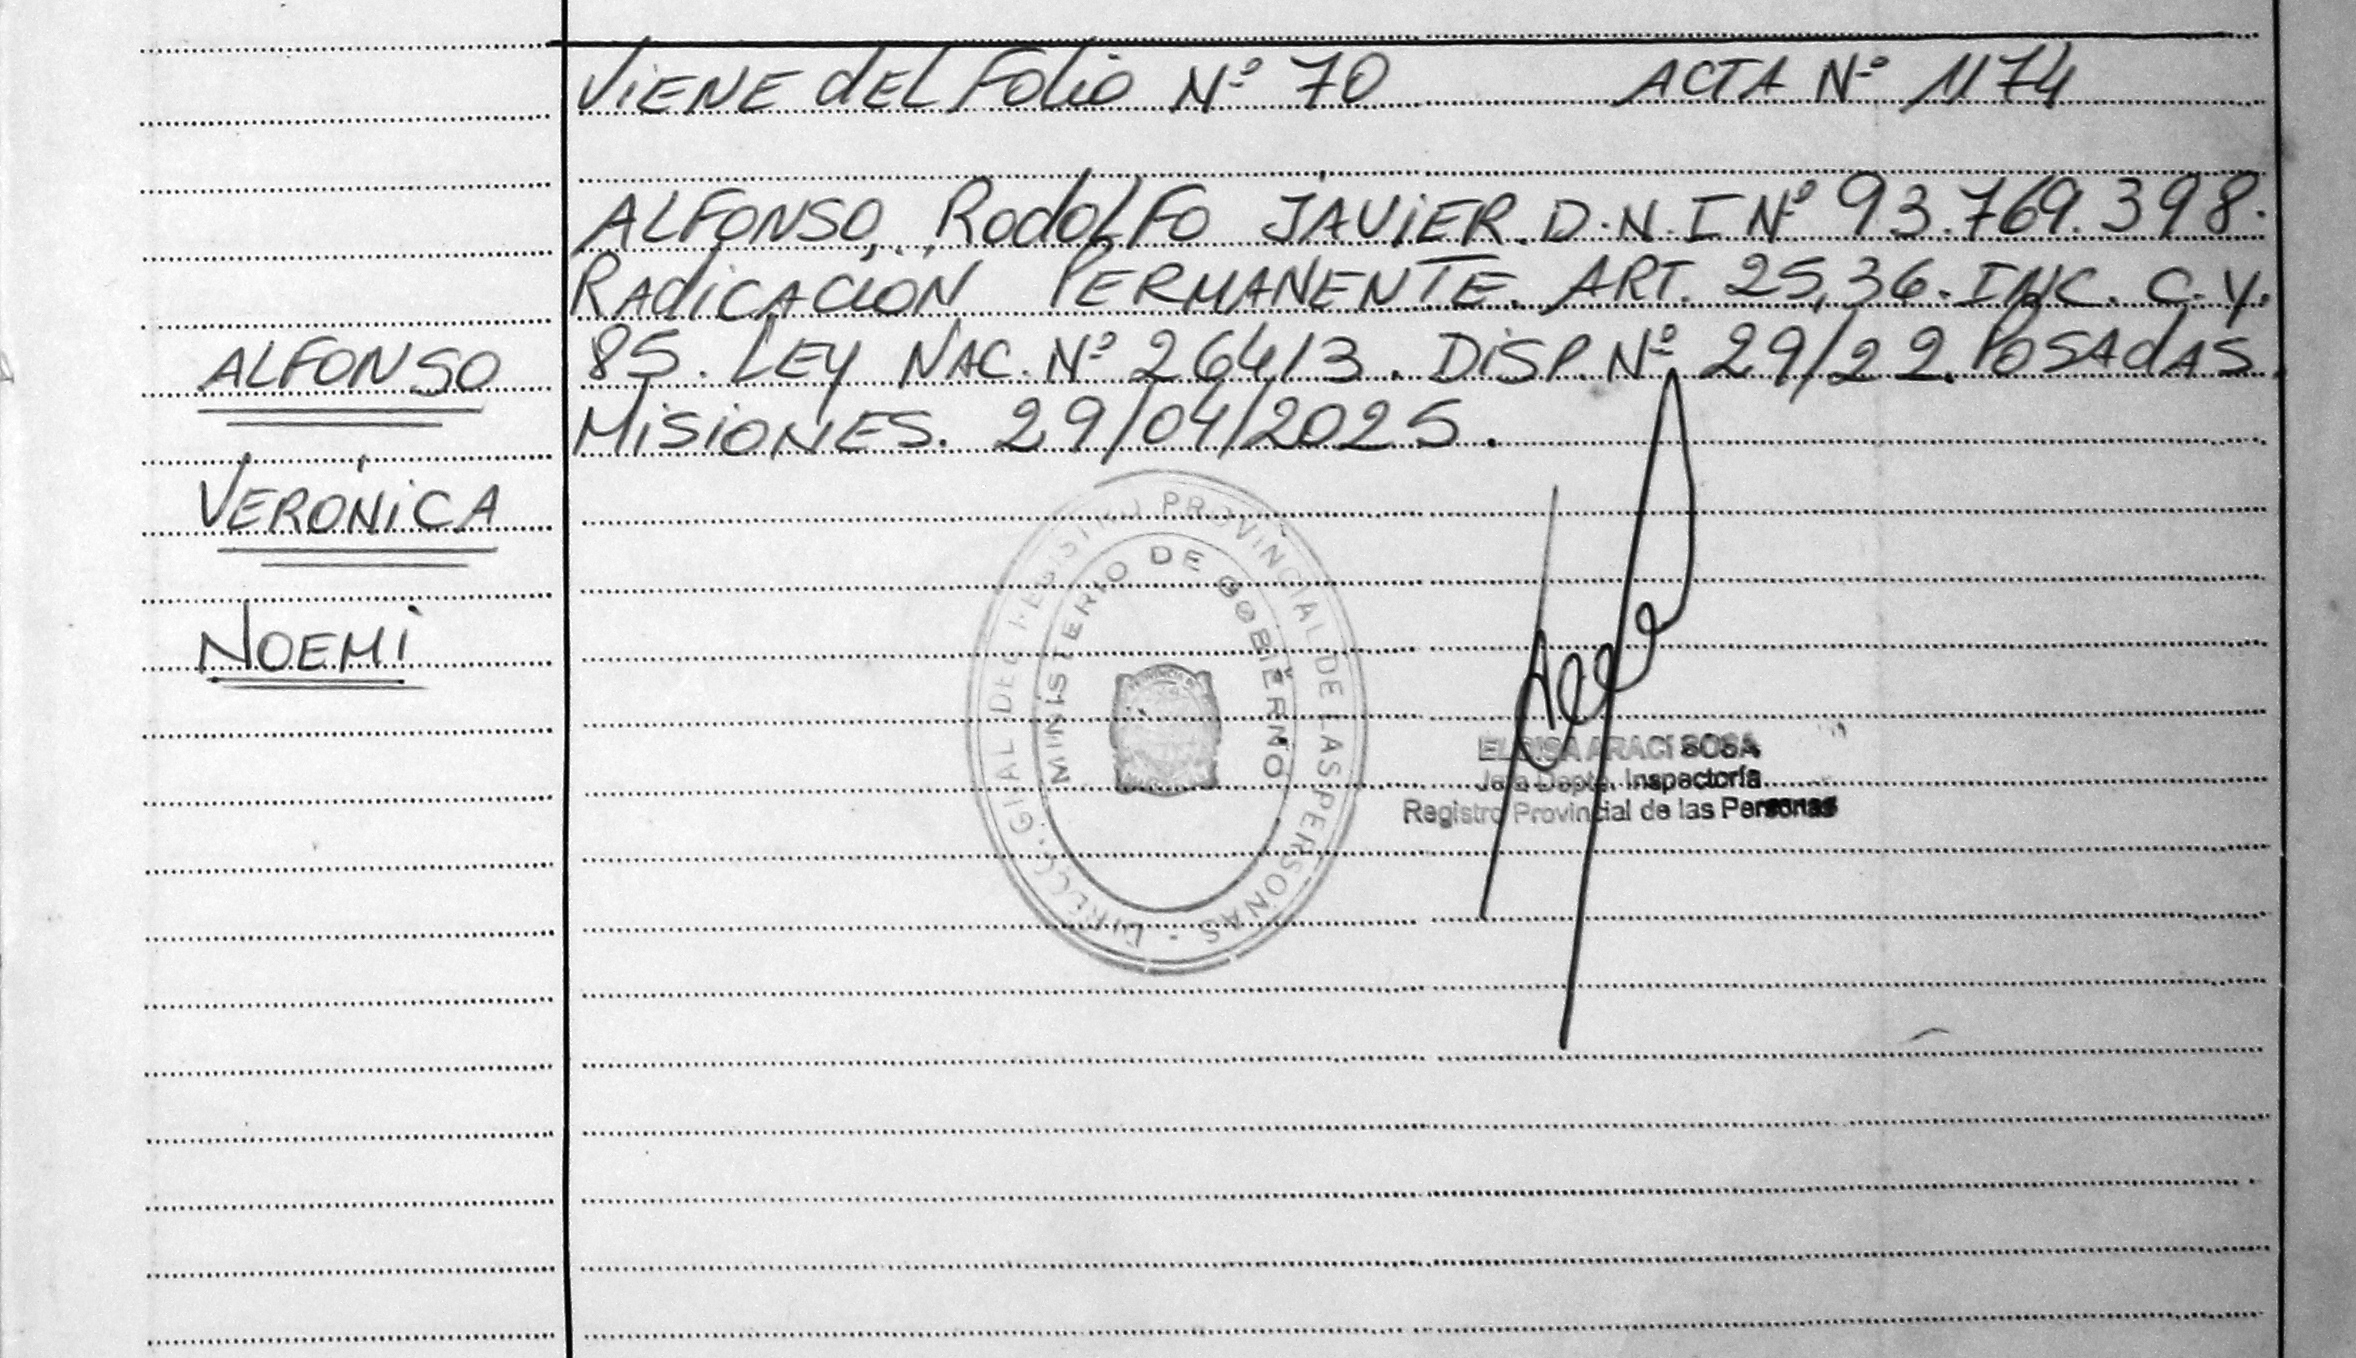 ViENE dEL Folio Nº 70 ACTA Nº 1174
ALFONSO, RodolFO JAViER. D.N.I Nº 93.769.398.
RAdiCACIÓN PERMANENTE. ART. 25,36. INC. C. Y.
85. LEY NAC. Nº 26413. DiSP. Nº 29/22. POSAdAS
MiSiONES. 29/04/2025.
ALFONSO
VERÓNiCA
NOEMí
MINISTERIO DE GOBIERNO
DIRECC. GRAL DEL REGISTRO PROVINCIAL DE LAS PERSONAS
ELOISA ARACI SOSA
Jefa Depto. Inspectoría
Registro Provincial de las Personas